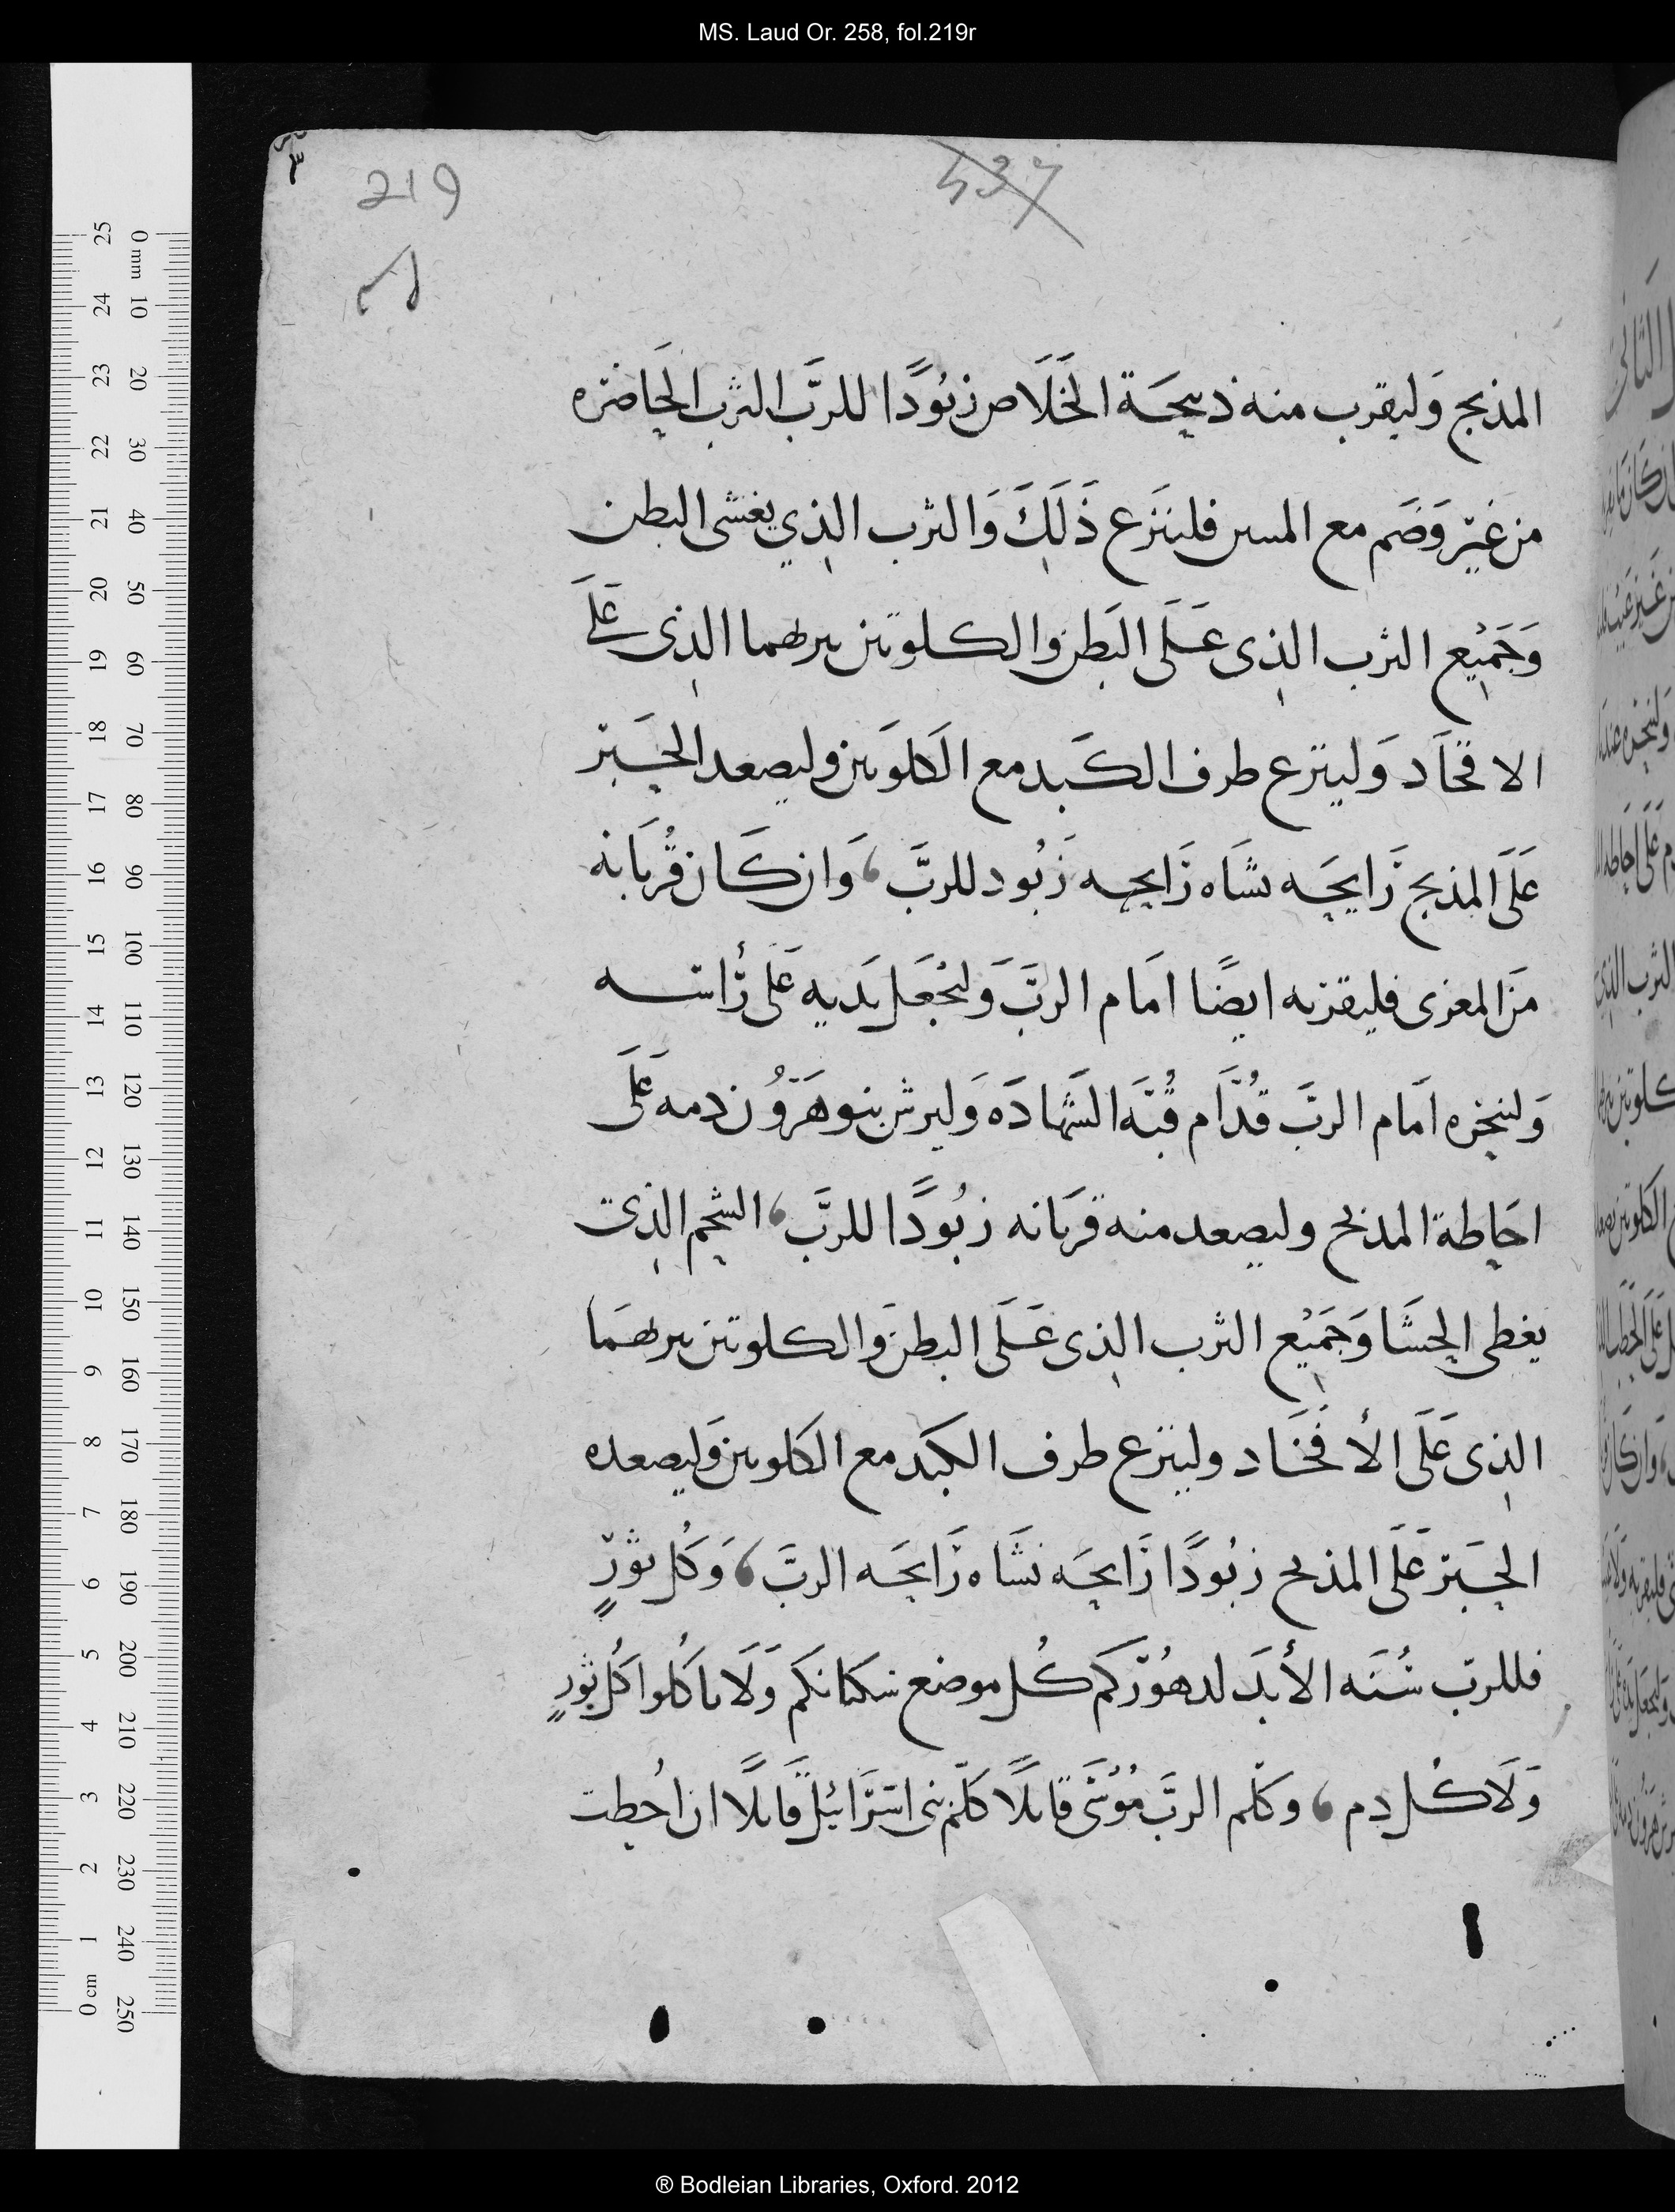 MS. Laud Or. 258, fol.219r
219
537
المذبح وَليقرب منه ذبيحَة الخَلَاص زبُودًا للربَّ الثرب الحَاضره
من غَير وَضَم مع المسں فلينَزع ذَلِكَ وَالثرب الذِي يغشى البطن
وَجَمِيع الثرب الذِى عَلَى البَطن وَالكلوتين ىىرىهما الذِى عَلَى
الافخَاد وَلينزع طرف الكَبد مع الكَلوَىىن وليصعد الحَبر
عَلَى المذبح رَايحَه نشَاه رَايحِه زَبُود للربَّ، وَان كَان قُربَانه
مَن المعزى فليقربه ايضًا امَام الربَّ وَليَجْعَل يَديه عَلى رَأسه
وَلينحره امَام الربَّ قدُّام قُبَّه الشَهادَه وَليرش بنو هَرُون دمه عَلَى
احَاطة المذبح وليصعد منه قربَانه زبُودًا للربَّ، الشحَم الذِى
يغطى الحِشَا وَجَمِيْع الثرب الذِى عَلَى البطن وَالكلوتين ىىرىهمَا
الذِى عَلَى الأفخَاد ولينزع طرف الكبَد مع الكلوىىن وَليصعده
الحَبر عَلَى المذبح زبُودًا رَايحَه نشَاه رَايحَه الربَّ، وَكُل ثَورٍ
فللربّ سُنَه الأبَد لدهُورَكم كُل موضع سكَانكم وَلَا تاكُلوا كُل ثَورٍ
وَلَا كُل دم، وكَلم الربَّ مُوْسَى قَايلًا كَلّم بنى اسرَائيْل قَايلًا ان اخُطت
® Bodleian Libraries, Oxford. 2012